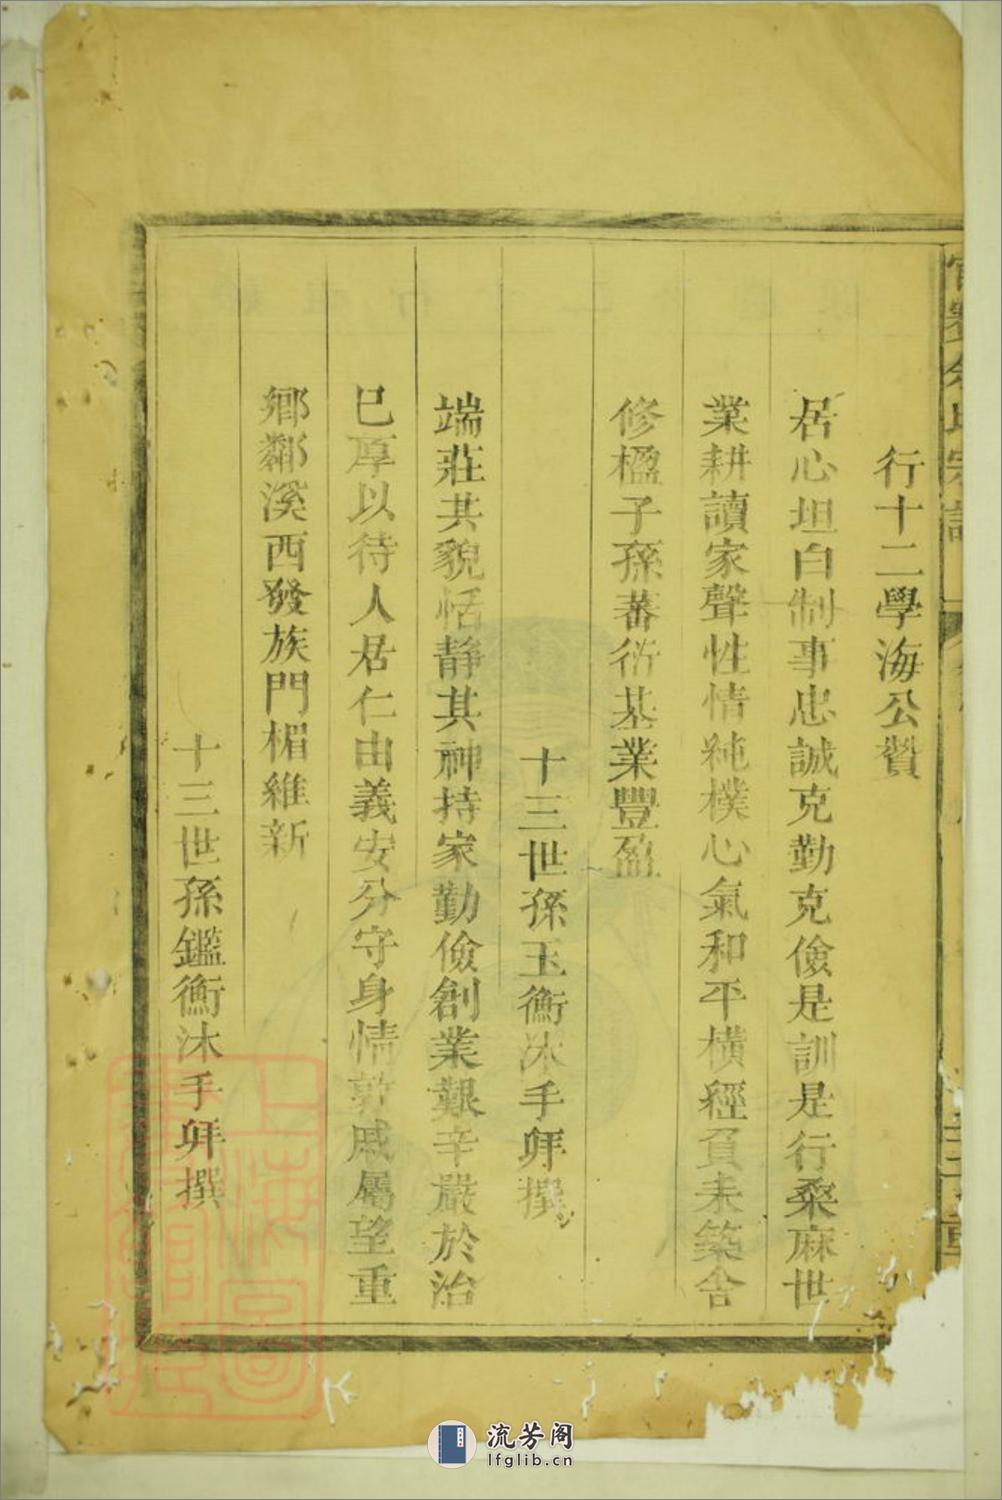 氏宗譜
行十二學海公贊
居心坦白制事忠誠克勤克儉是訓是行桑麻世
業耕讀家聲性情純樸心氣和平橫經負耒築舍
修楹子孫蕃衍基業豐盈
十三世孫玉衡沐手拜撰
端莊其貌恬静其神持家勤儉創業艱辛嚴於治
已厚以待人居仁由義安分守身情敦戚屬望重
鄉鄰溪西發族門楣維新
十三世孫鑑衡沐手拜撰
上海圖
書館藏
流芳阁
lfglib.cn